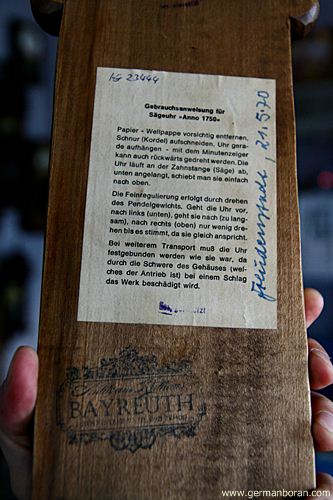 HG 23444
Gebrauchsanweisung für
Sägeuhr »Anno 1750«
Papier - Wellpappe vorsichtig entfernen,
Schnur (Kordel) aufschneiden. Uhr gera-
de aufhängen - mit dem Minutenzeiger
kann auch rückwärts gedreht werden. Die
Uhr läuft an der Zahnstange (Säge) ab,
unten angelangt, schiebt man sie einfach
nach oben.
Die Feinregulierung erfolgt durch drehen
des Pendelgewichts. Geht die Uhr vor,
nach links (unten), geht sie nach (zu lang-
sam), nach rechts (oben) nur wenig dre-
hen bis es stimmt, da sie gleich anspricht.
Bei weiterem Transport muß die Uhr
festgebunden werden wie sie war, da
durch die Schwere des Gehäuses (wel-
ches der Antrieb ist) bei einem Schlag
das Werk beschädigt wird.
, 21.5.70
BAYREUTH
www.germanboran.com